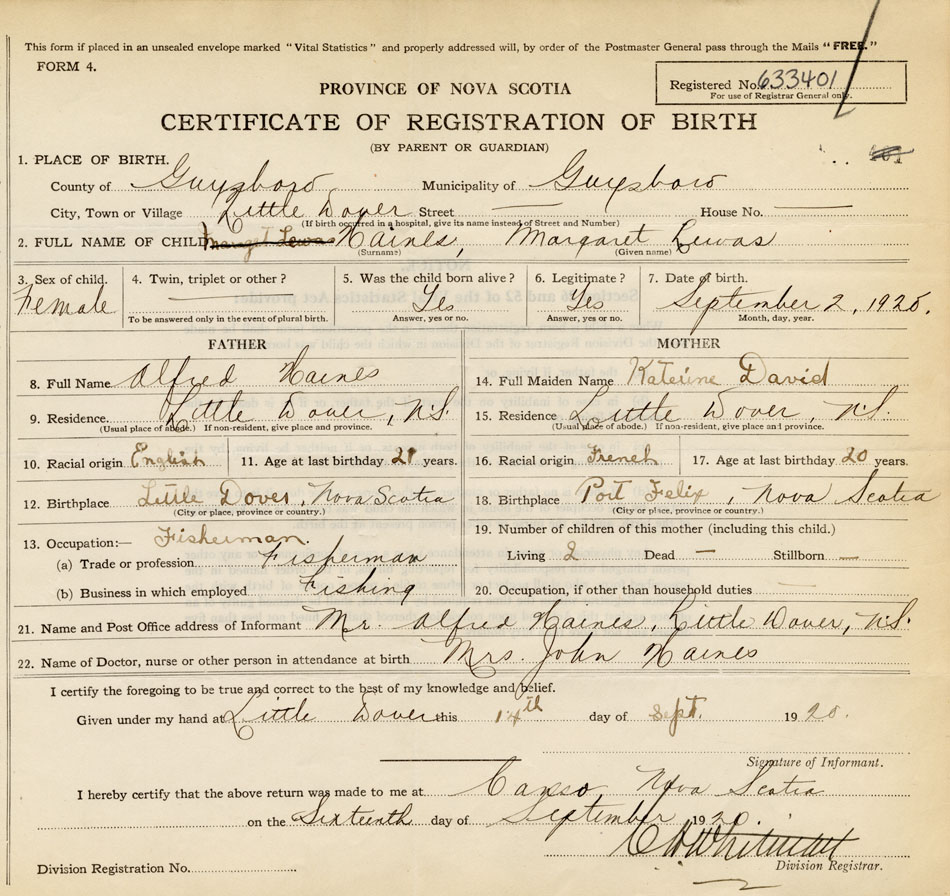 This form if placed in an unsealed envelope marked "Vital Statistics" and properly addressed will, by order of the Postmaster General pass through the Mails "FREE."
FORM 4.
Registered No. 633401
For use of Registrar General only.
PROVINCE OF NOVA SCOTIA
CERTIFICATE OF REGISTRATION OF BIRTH
(BY PARENT OR GUARDIAN)
1. PLACE OF BIRTH.
County of Guysboro Municipality of Guysboro
City, Town or Village Little Dover Street — House No. —
(If birth occurred in a hospital, give its name instead of Street and Number)
2. FULL NAME OF CHILD Haines, Margaret Lewas
(Surname) (Given name)
3. Sex of child. 4. Twin, triplet or other? 5. Was the child born alive? 6. Legitimate? 7. Date of birth.
Female — Yes Yes September 2, 1920.
To be answered only in the event of plural birth. Answer, yes or no. Answer, yes or no. Month, day, year.
FATHER
8. Full Name Alfred Haines
9. Residence. Little Dover, N.S.
(Usual place of abode.) If non-resident, give place and province.
10. Racial origin English 11. Age at last birthday 21 years.
12. Birthplace Little Dover, Nova Scotia
(City or place, province or country.)
13. Occupation:— Fisherman.
(a) Trade or profession Fisherman
(b) Business in which employed Fishing
MOTHER
14. Full Maiden Name Katerine David
15. Residence Little Dover, N.S.
(Usual place of abode.) If non-resident, give place and province.
16. Racial origin French 17. Age at last birthday 20 years.
18. Birthplace Port Felix, Nova Scotia
(City or place, province or country.)
19. Number of children of this mother (including this child.)
Living 2 Dead — Stillborn —
20. Occupation, if other than household duties —
21. Name and Post Office address of Informant Mr. Alfred Haines, Little Dover, N.S.
22. Name of Doctor, nurse or other person in attendance at birth Mrs. John Haines
I certify the foregoing to be true and correct to the best of my knowledge and belief.
Given under my hand at Little Dover this 14th day of Sept. 1920.
Signature of Informant.
I hereby certify that the above return was made to me at Canso, Nova Scotia
on the Sixteenth day of September, 1920.
Division Registration No.
Division Registrar.